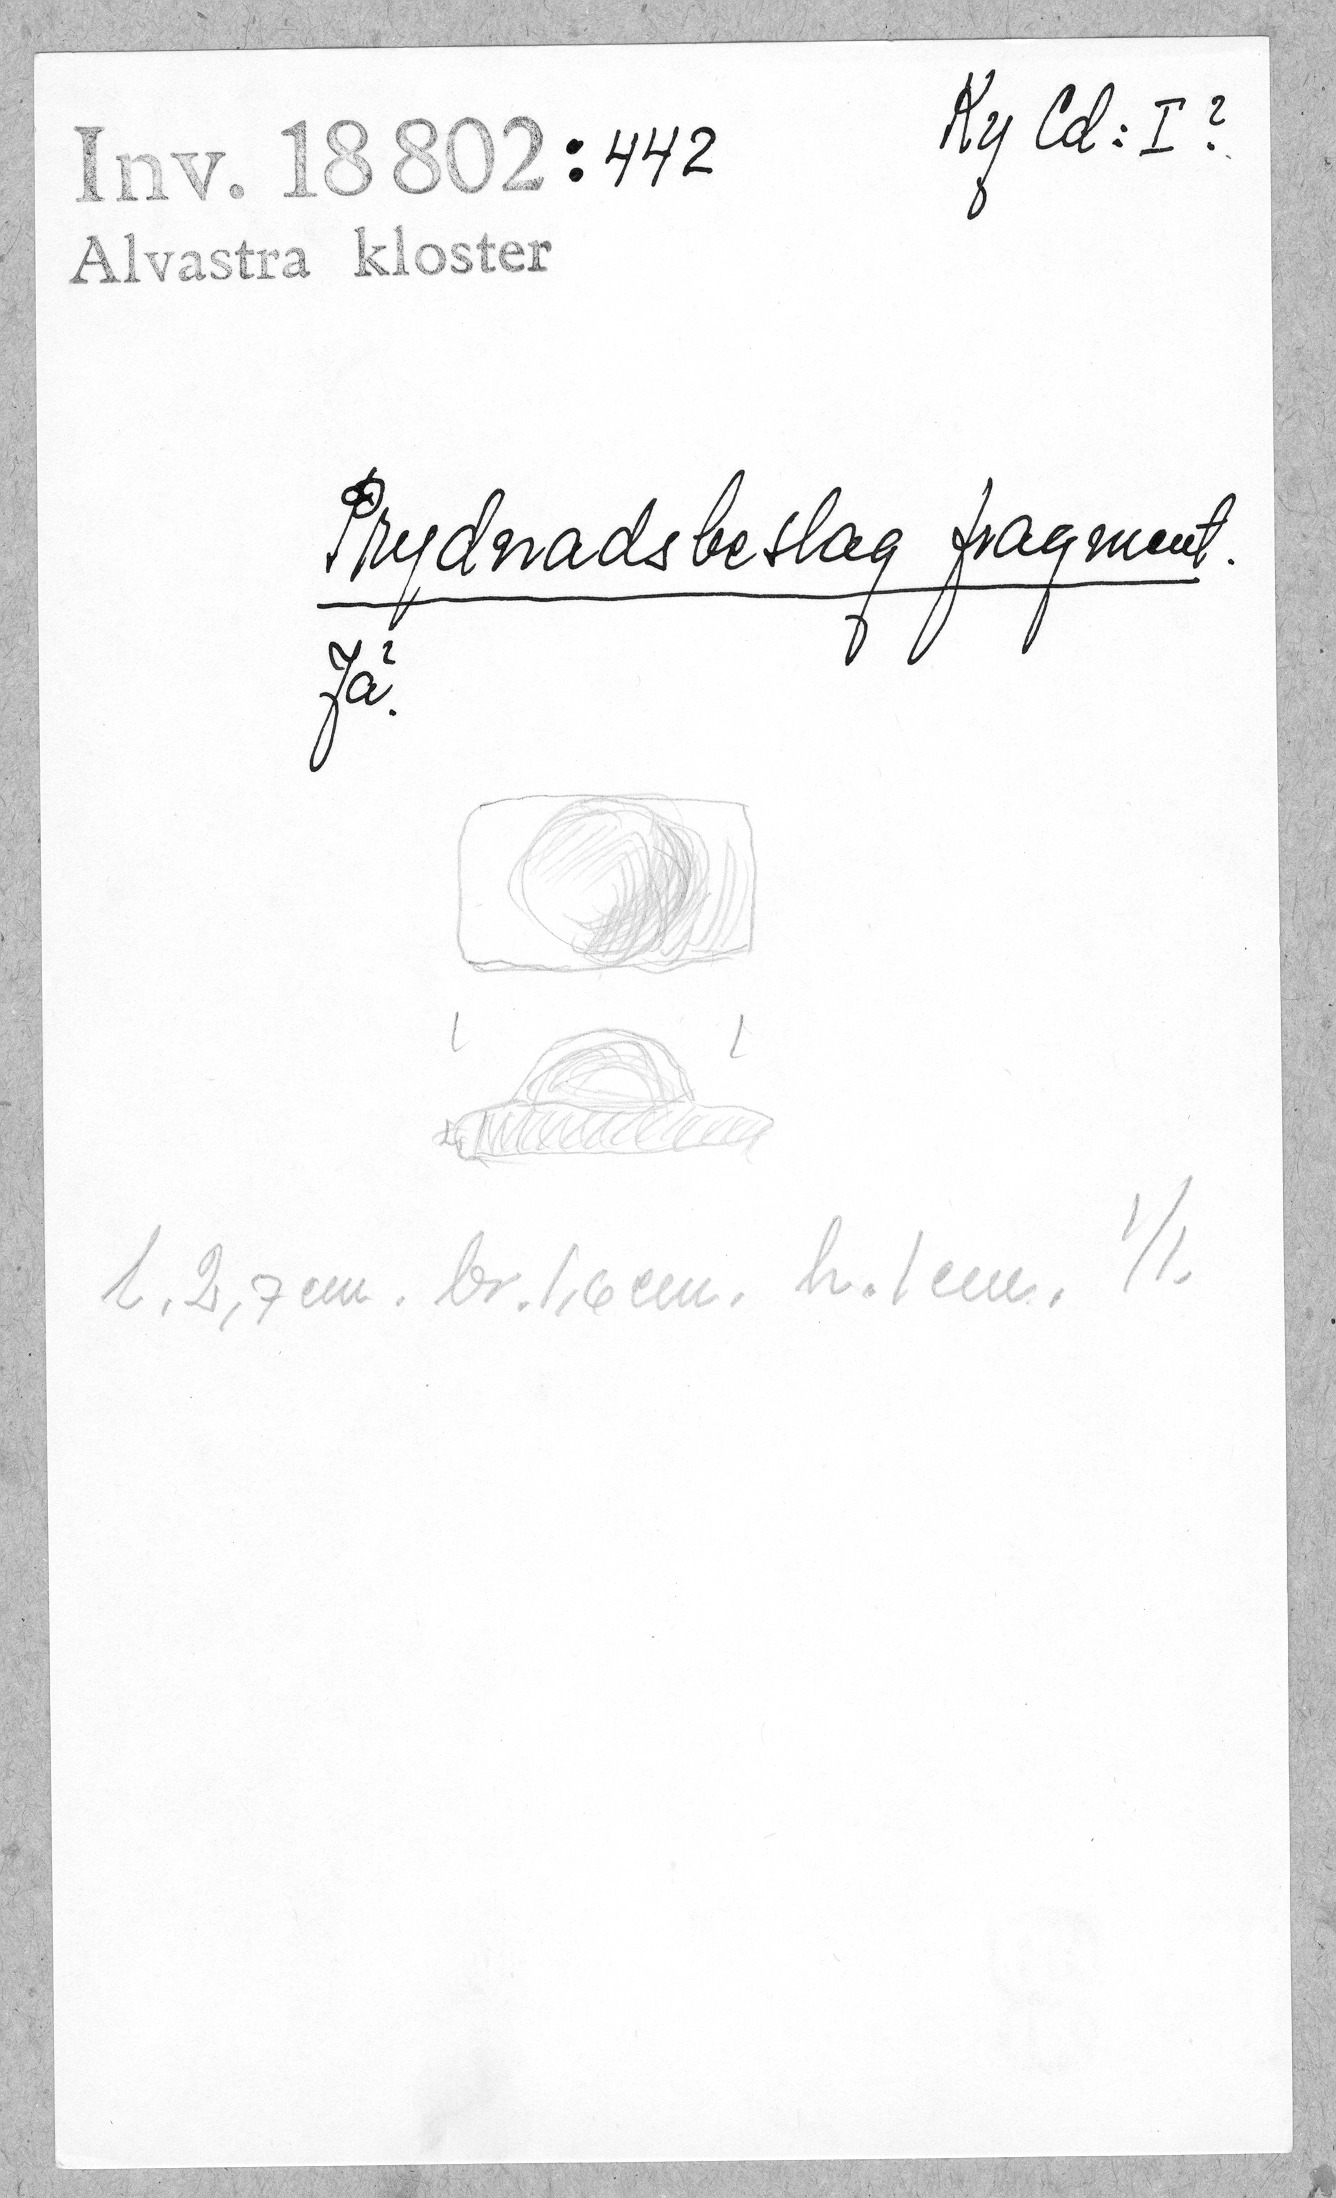 Inv. 18 802:442
Ky Cd: I?
Alvastra kloster
Prydnadsbeslag fragment.
Jä?
l. 2,7 cm. br. 1,6 cm. h. 1 cm. 1/1.